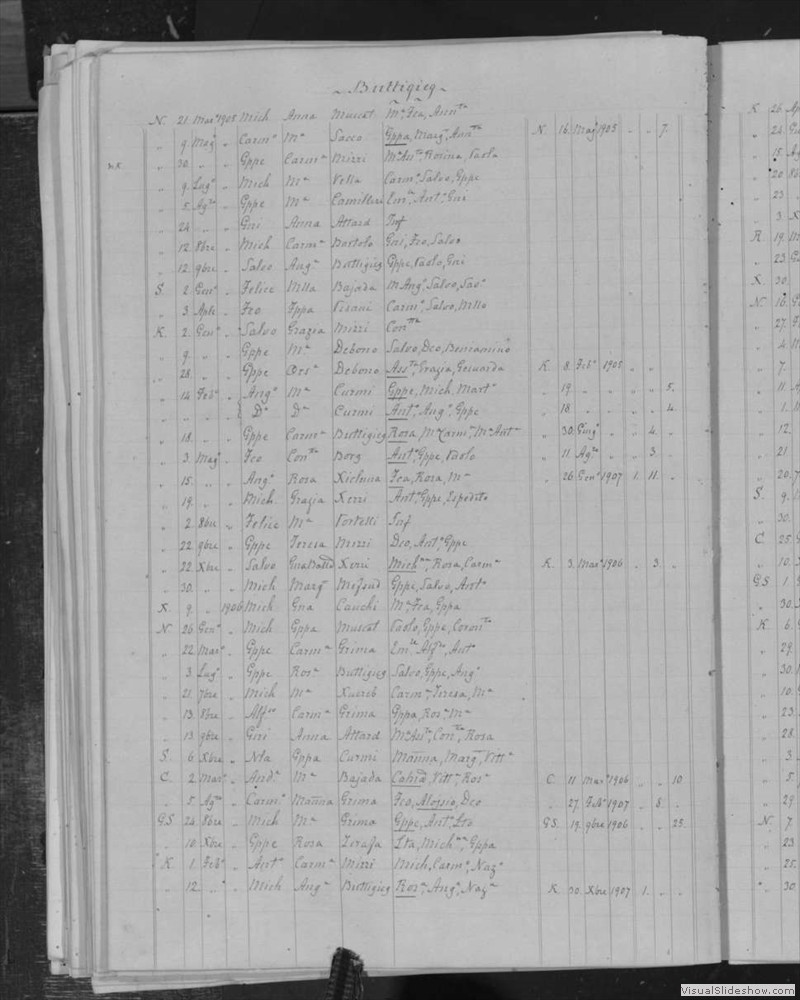 Buttigieg
N. 21 Marzo 1905 Mich Anna Muscat Ma, Fca, Annta
" 9 Mago " Carmo Ma Sacco Gppa, Margta, Annta N. 16 Mago 1905 " " 7.
" 30 " " Gppe Carma Mizzi Ma Anta, Rosina, Paola
" 9 Lugo " Mich Ma Vella Carmo, Salvo, Gppe
" 5 Agto " Gppe Ma Camilleri Emle, Anto, Gni
" 24 " " Gni Anna Attard Inf
" 12 8bre " Mich Carma Bartolo Gni, Fco, Salvo
" 12 9bre " Salvo Anga Buttigieg Gppe, Paolo, Gni
S. 2 Geno " Felice Mlla Bajada M Ango, Salvo, Savo
" 3 Aple " Fco Gppa Pisani Carmo, Salvo, Mllo
K. 2 Geno " Salvo Grazia Mizzi Contta
" 9 " " Gppe Ma Debono Salvo, Dco, Beniamino
" 28 " " Gppe Orsa Debono Assta, Grazia, Genuarda K. 8 Febo 1905 " " "
" 14 Febo " Ango Ma Curmi Gppe, Mich, Marto " 19 " " " " 5.
" " " " Do Da Curmi Anto, Ango, Gppe " 18 " " " " 4.
" 18 " " Gppe Carma Buttigieg Rosa, Ma Carma, Ma Anta " 30 Giugo " " 4. "
" 3 Mago " Fco Contta Borg Anto, Gppe, Paolo " 11 Agto " " 3. "
" 15 " " Ango Rosa Xicluna Fca, Rosa, Ma " 26 Geno 1907 1. 11. "
" 19 " " Mich Grazia Xerri Anto, Gppe, Espedito
" 2 8bre " Felice Ma Portelli Inf
" 22 9bre " Gppe Teresa Mizzi Dco, Anto, Gppe
" 22 Xbre " Salvo Gna Batta Xerri Michna, Rosa, Carma K. 3 Marzo 1906 " 3. "
" 30 " " Mich Margta Mifsud Gppe, Salvo, Anto
X. 9 " 1906 Mich Gna Cauchi Ma, Fca, Gppa
N. 26 Geno " Mich Gppa Muscat Paolo, Gppe, Coronto
" 22 Marzo " Gppe Carma Grima Emle, Alfso, Anto
" 3 Lugo " Gppe Rosa Buttigieg Salvo, Gppe, Ango
" 21 7bre " Mich Ma Xuereb Carma, Teresa, Ma
" 13 8bre " Alfso Carma Grima Gppa, Rosa, Ma
" 13 9bre " Gni Anna Attard Ma Anta, Conta, Rosa
S. 6 Xbre " Nta Gppa Curmi Manna, Margta, Vitta
C. 2 Marzo " Anda Ma Bajada Catna, Vitta, Rosa C. 11 Marzo 1906 " " 10
" 5 Agto " Carmo Manna Grima Fco, Aloysio, Dco " 27 Febo 1907 " 8. "
GS 24 8bre " Mich Ma Grima Gppe, Anto, Lto GS. 19 9bre 1906 " " 25.
" 10 Xbre " Gppe Rosa Zerafa Lta, Michna, Gppa
K. 1 Febo " Anto Carma Mizzi Mich, Carmo, Nazo
" 12 " " Mich Anga Buttigieg Rosa, Anga, Naza K. 30 Xbre 1907 1. " "
VisualSlideshow.com